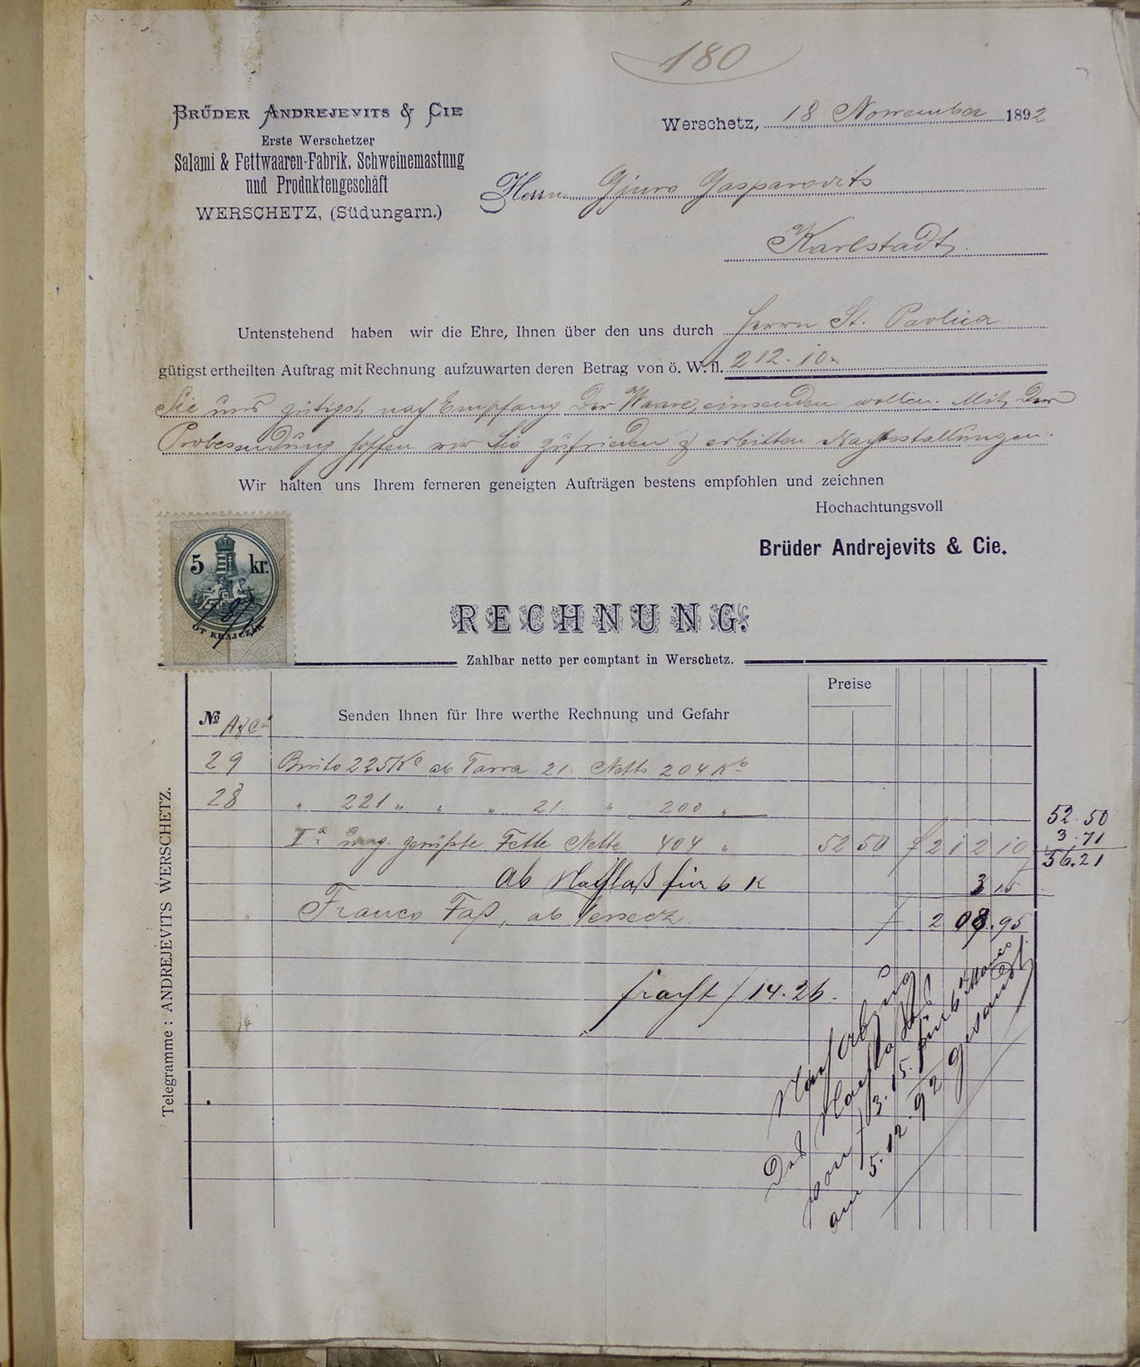 180
BRÜDER ANDREJEVITS & CIE
Erste Werschetzer
Salami & Fettwaaren-Fabrik, Schweinemastung
und Produktengeschäft
WERSCHETZ, (Südungarn.)
Werschetz, 18 November 1892
Herrn Gjuro Gasparovits
Karlstadt.
Untenstehend haben wir die Ehre, Ihnen über den uns durch Herrn St. Pavlica
gütigst ertheilten Auftrag mit Rechnung aufzuwarten deren Betrag von ö. W. fl. 212.10
Sie uns gütigst nach Empfang der Waare, einsenden wollen. Mit der
Probesendung hoffen wir Sie zufrieden & erbitten Nachbestallungen.
Wir halten uns Ihrem ferneren geneigten Aufträgen bestens empfohlen und zeichnen
Hochachtungsvoll
Brüder Andrejevits & Cie.
5 kr.
ÖT KRAJCZÁR
RECHNUNG.
Zahlbar netto per comptant in Werschetz.
Preise
№ A&C Senden Ihnen für Ihre werthe Rechnung und Gefahr
29 Brutto 225 Ko ab Tarra 21. Netto 204 Ko
28 " 221 " " " 21. " 200 "
Ia ung. Fette Netto 404 " 52 50 f 212 10
52.50
3.71
56.21
ab Nachlaß für 6 K 3 15
Franco Faß, ab f 208.95
fracht f 14.26.
Nachtrag
Das Nachlaß
von f 3.15. für 6 K Manco
am 5.12.92 gesandt
Telegramme: ANDREJEVITS WERSCHETZ.